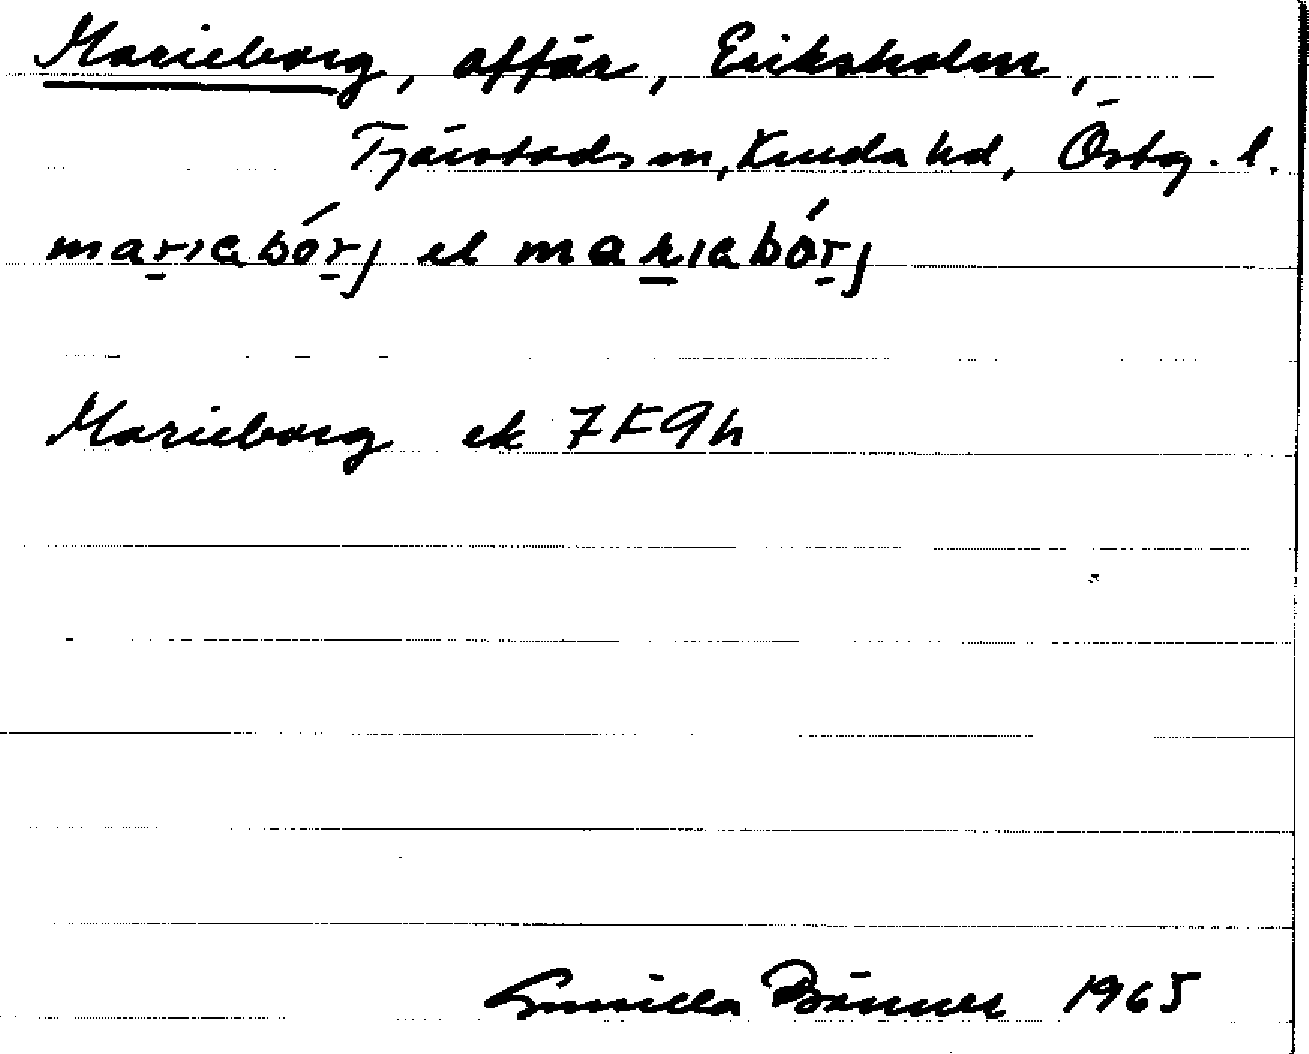 Marieborg, affär, Eriksholm,
Tjärstads sn, Kinda hd, Östg. l.
marıabórj el marıabórj
Marieborg ek 7F9h
Gunilla 1965